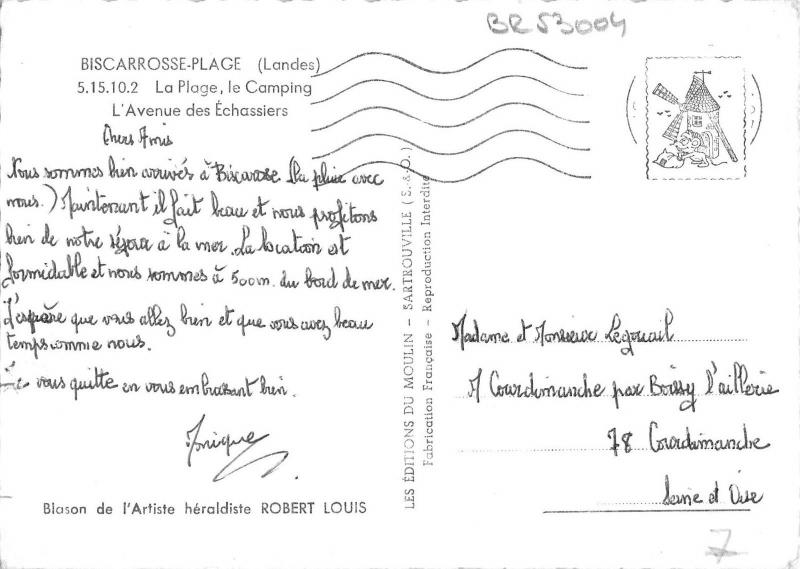 BR53004
BISCARROSSE-PLAGE (Landes)
5.15.10.2 La Plage, le Camping
L'Avenue des Échassiers
Chers Amis
Nous sommes bien arrivés à Biscarosse (la pluie avec
nous.) Maintenant il fait beau et nous profitons
bien de notre séjour à la mer. La location est
formidable et nous sommes à 500m. du bord de mer.
J'espère que vous allez bien et que vous avez beau
temps comme nous.
Je vous quitte en vous embrassant bien.
Monique
Blason de l'Artiste héraldiste ROBERT LOUIS
LES ÉDITIONS DU MOULIN - SARTROUVILLE (S.-&-O.)
Fabrication Française - Reproduction Interdite
Madame et Monsieur Legouail
A Courdimanche par Boissy l'aillerie
78 Courdimanche
Seine et Oise
7